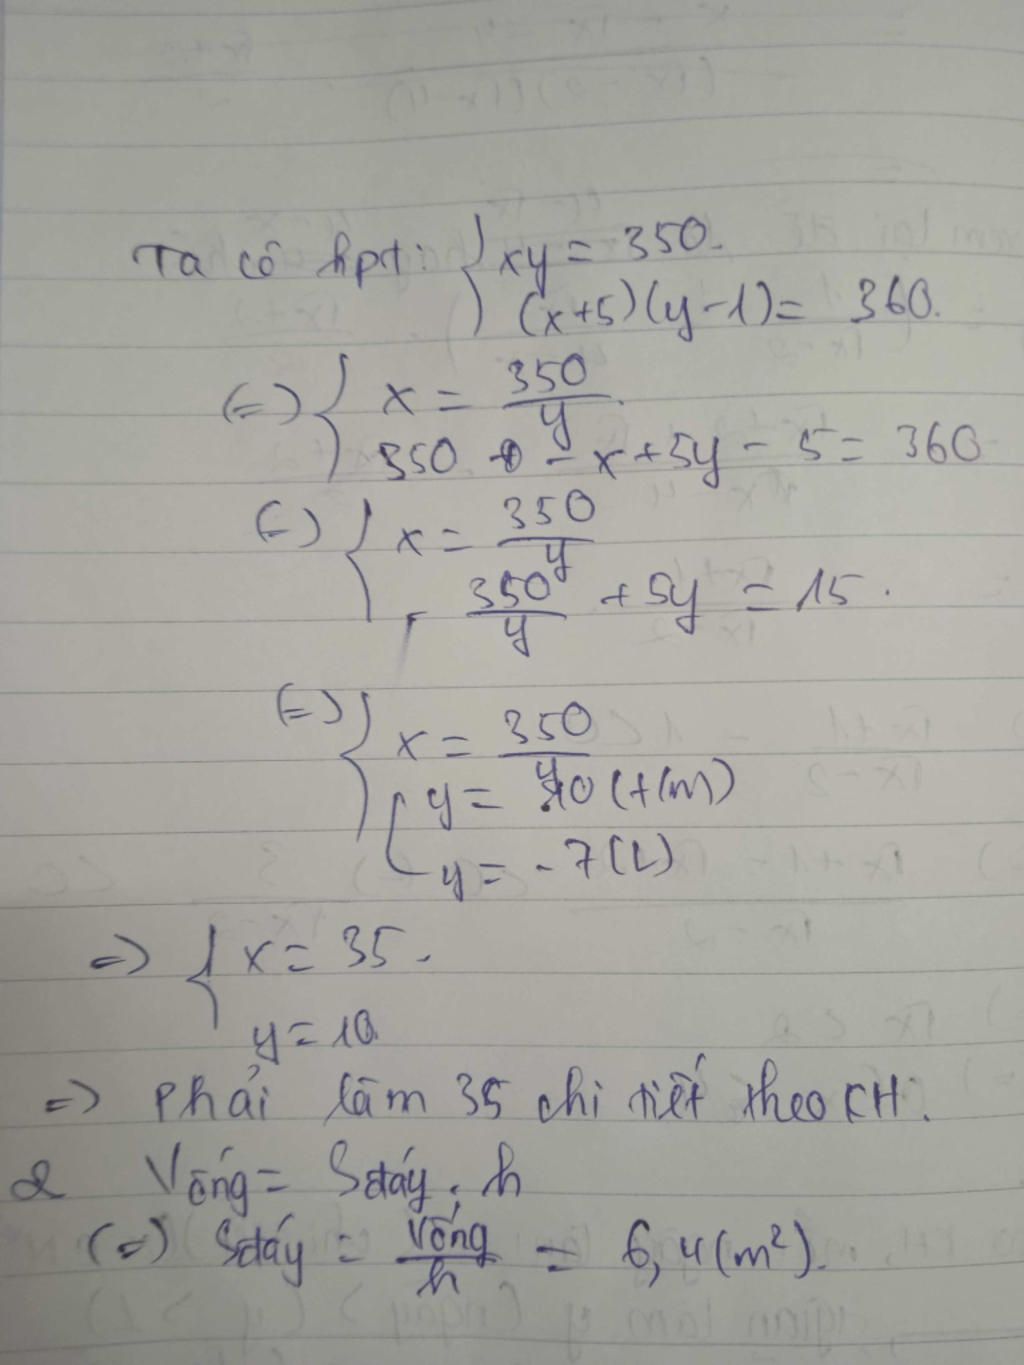 Ta có hpt: { xy = 350.
(x+5)(y-1) = 360.
(=) { x = 350/y
350 - x + 5y - 5 = 360
(=) { x = 350/y
- 350/y + 5y = 15.
(=) { x = 350/y
[ y = 10 (t/m)
y = -7 (L)
=> { x = 35.
y = 10
=> Phải làm 35 chi tiết theo KH.
2 Vống = Sđáy . h
(=) Sđáy = Vống/h = 6,4 (m²).